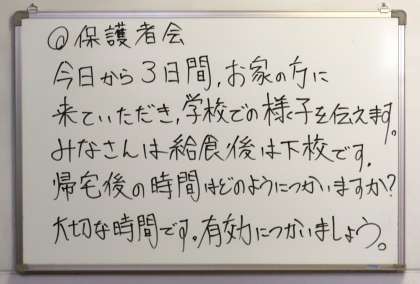 ◎保護者会
今日から3日間,お家の方に
来ていただき,学校での様子を伝えます。
みなさんは給食後は下校です。
帰宅後の時間はどのようにつかいますか?
大切な時間です。有効につかいましょう。